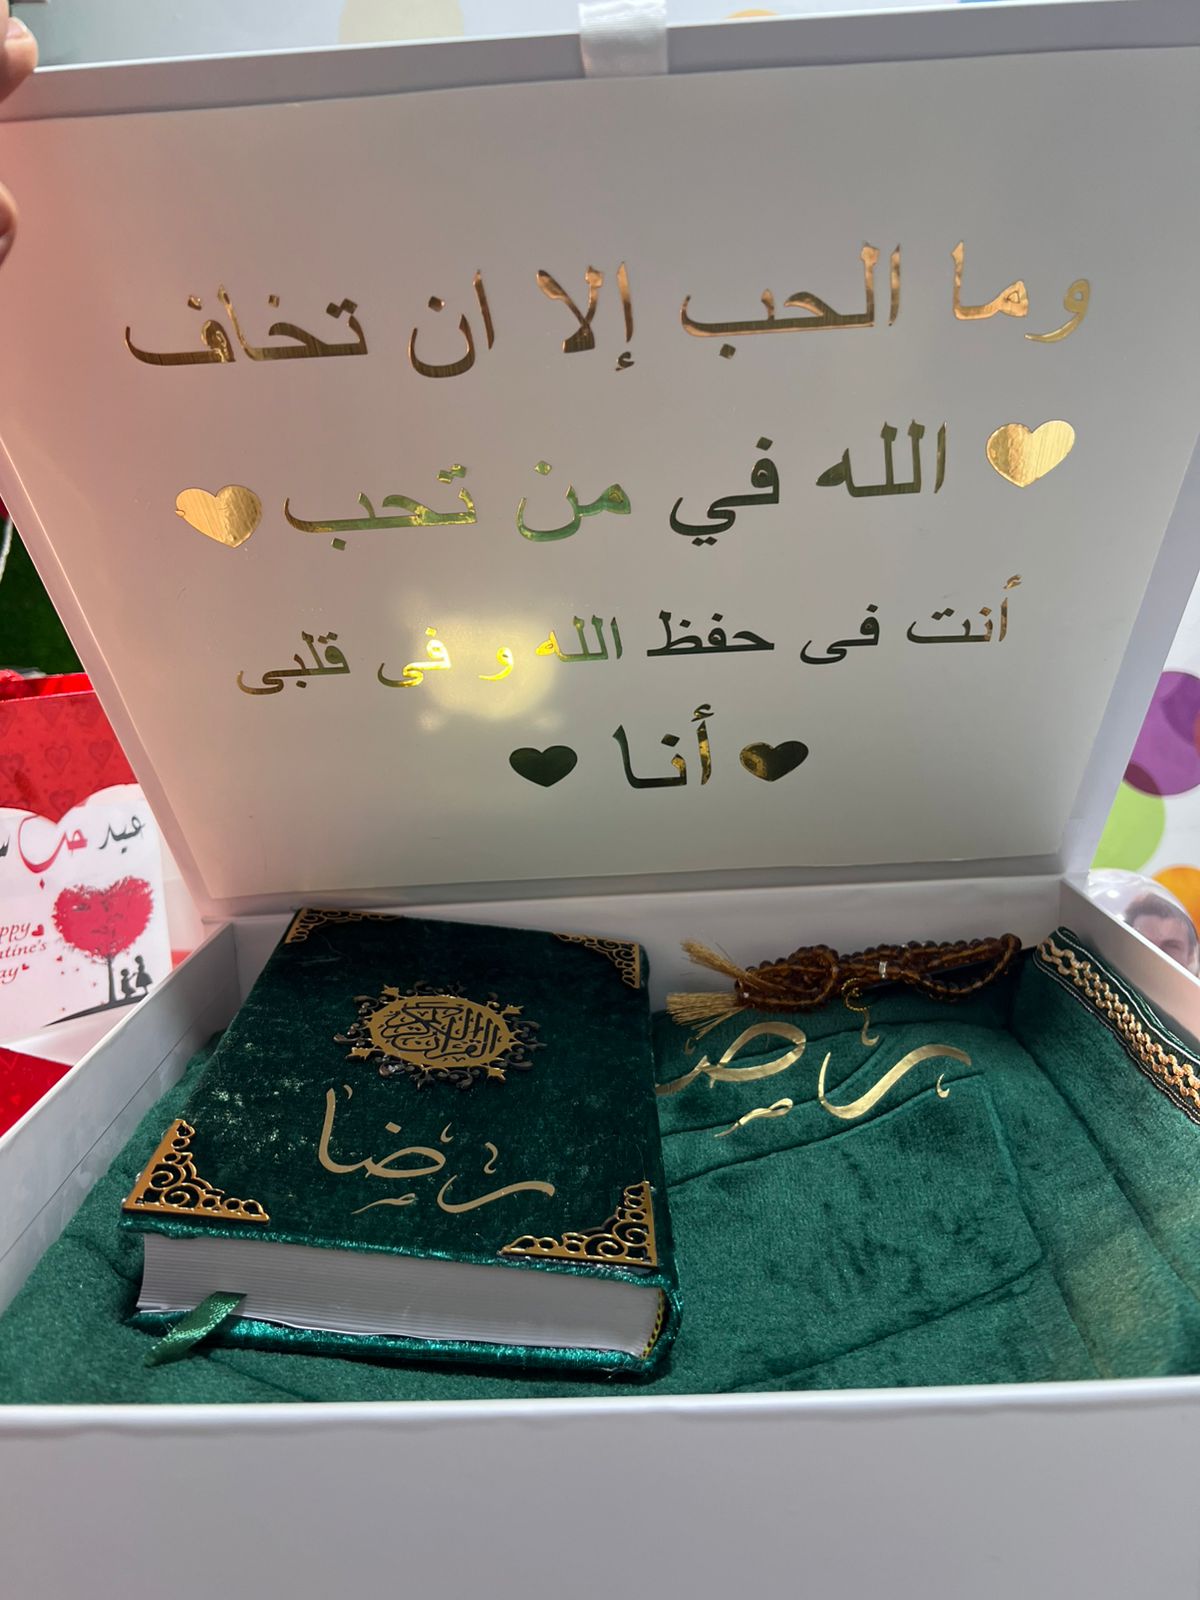 وما الحب إلا ان تخاف
الله في من تحب
أنت فى حفظ الله و فى قلبى
أنا
عيد حب
القرآن الكريم
رضا
رضا